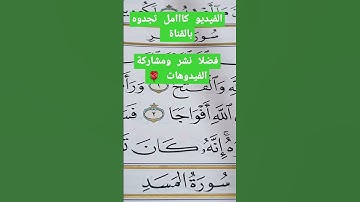 الفيديو كاااامل تجدوه
بالقناة
فضلا نشر ومشاركة
الفيدوهات 🌹
سُورَةُ
وَالْفَتْحُ ١ وَرَأَ
اللَّهِ أَفْوَاجًا ٢ فَسَ
إِنَّهُ كَانَ تَ
سُورَةُ المَسَدِ